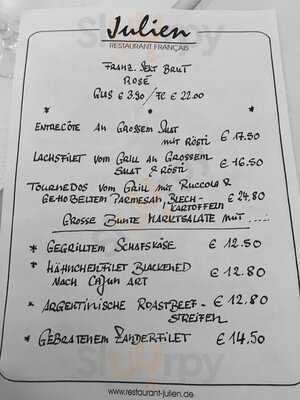 Julien
RESTAURANT FRANÇAIS
FRANZ. SEKT BRUT
ROSÉ
GLAS € 3.90 / FL € 22.00
* * *
ENTRECÔTE AN GROSSEM SALAT
MIT RÖSTI € 17.50
LACHSFILET VOM GRILL AN GROSSEM
SALAT & RÖSTI € 16.50
TOURNEDOS VOM GRILL MIT RUCCOLA &
GEHOBELTEM PARMESAN, BLECH-
KARTOFFELN € 24.80
GROSSE BUNTE MARKTSALATE MIT ....:
* GEGRILLTEM SCHAFSKÄSE € 12.50
* HÄHNCHENFILET BLACKENED
NACH CAJUN ART € 12.80
* ARGENTINISCHE ROASTBEEF-
STREIFEN € 12.80
* GEBRATENEM ZANDERFILET € 14.50
www.restaurant-julien.de
Sluurpy